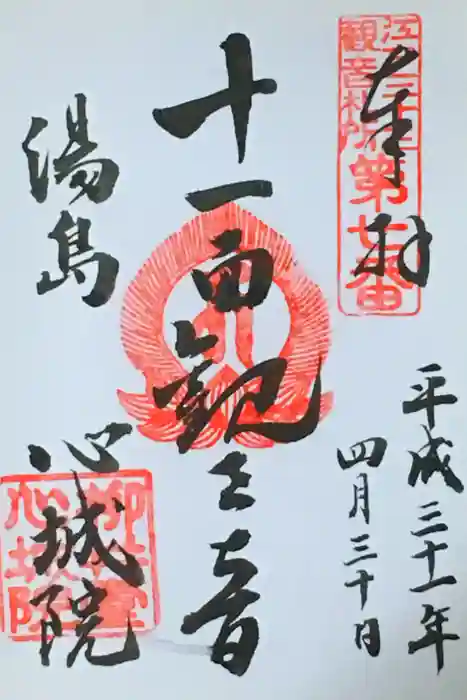 奉拝
江戸三十三
観音札所
第七番
平成三十一年
四月三十日
十一面観世音
湯島
心城院